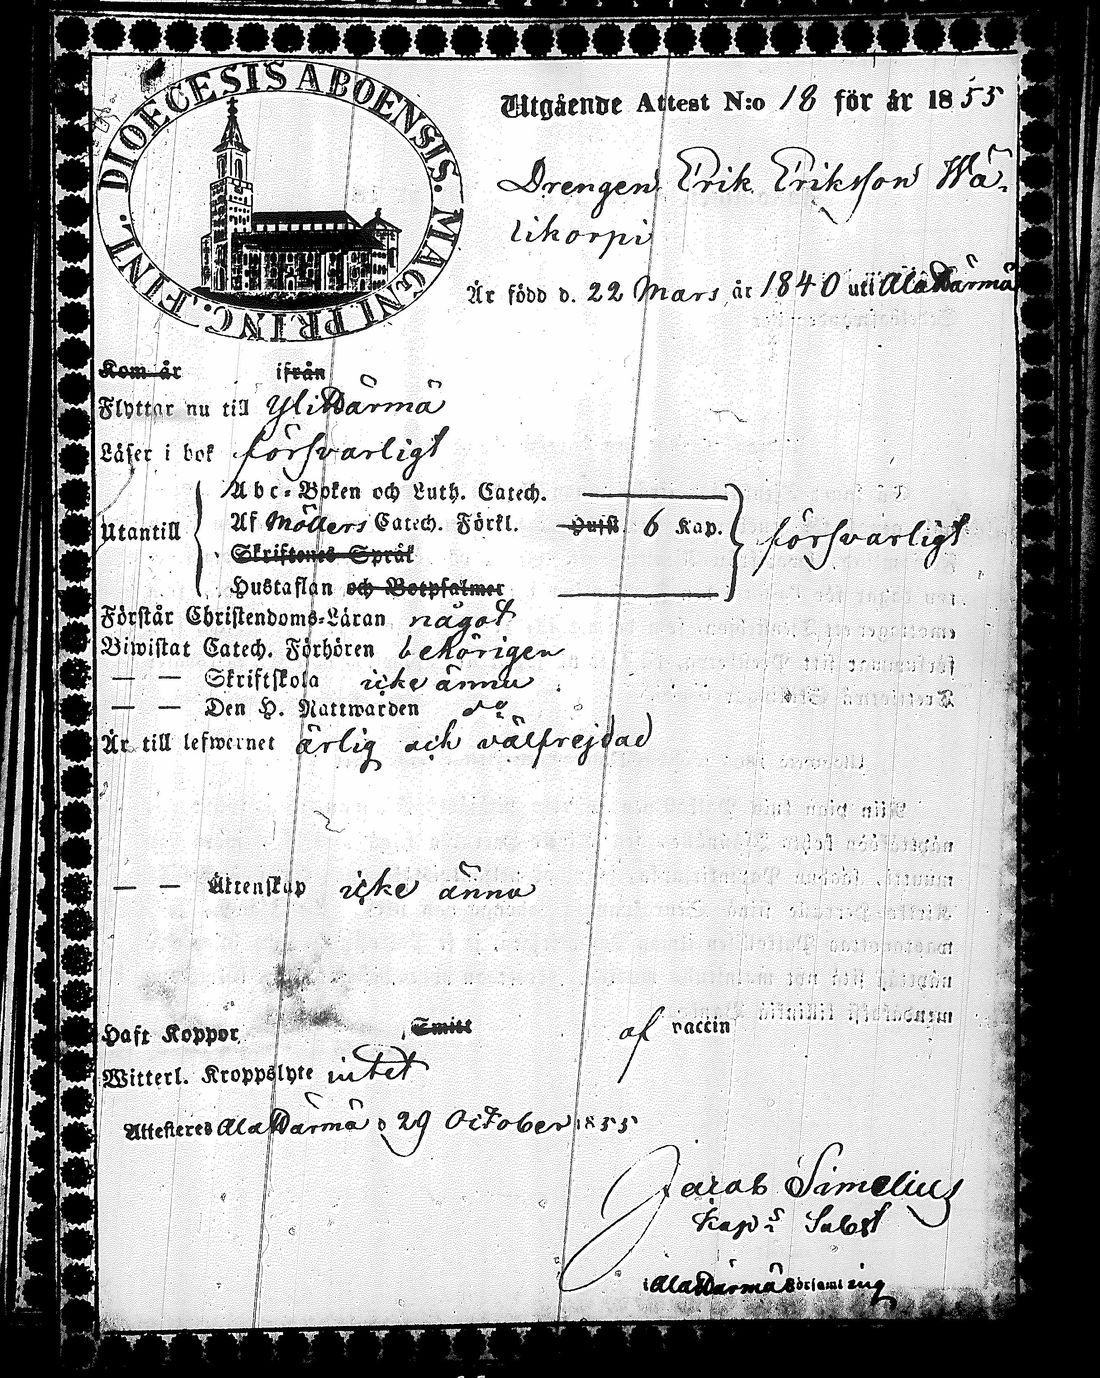 DIOECESIS ABOENSIS. MAGNI PRINC. FINL.
Utgående Attest N:o 18 för år 1855
Drengen Erik Eriksson Wä-
likorpi
Är född d. 22 Mars år 1840 uti AlaHärmä
Kom år ifrån
Flyttar nu till YliHärmä
Läser i bok försvarligt
Abc-Boken och Luth. Catech.
Utantill Af Möllers Catech. Förkl. 6 Kap. försvarligt
Skriftenes Språk
Hustaflan och Botpsalmer
Förstår Christendoms-Läran något
Biwistat Catech. Förhören behörigen
— — Skriftskola icke ännu
— — Den H. Nattwarden do
Är till lefwernet ärlig och välfrejdad
— — Äktenskap icke ännu
Haft Koppor Smitt af vaccin
Witterl. Kroppslyte intet
Attesteres AlaHärmä d 29 October 1855
Jacob Simelius
Kaps Subst
i AlaHärmä Församling